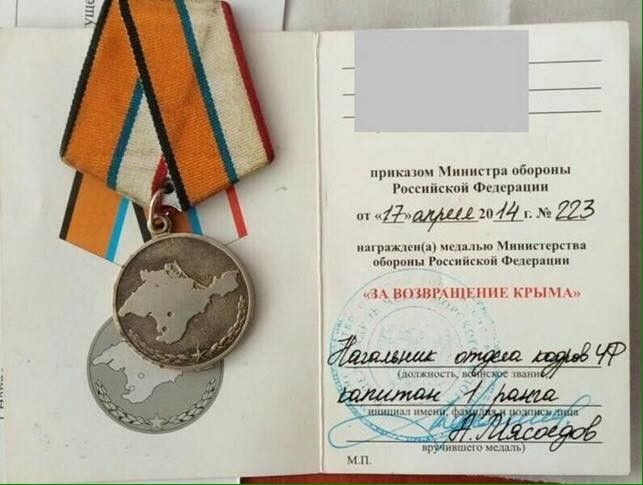 приказом Министра обороны
Российской Федерации
от «17» апреля 2014 г. № 223
награжден(а) медалью Министерства
обороны Российской Федерации
«ЗА ВОЗВРАЩЕНИЕ КРЫМА»
Начальник отдела кадров ЧФ
(должность, воинское звание,
капитан 1 ранга
инициал имени, фамилия и подпись лица
А. Мясоедов
вручившего медаль)
М.П.